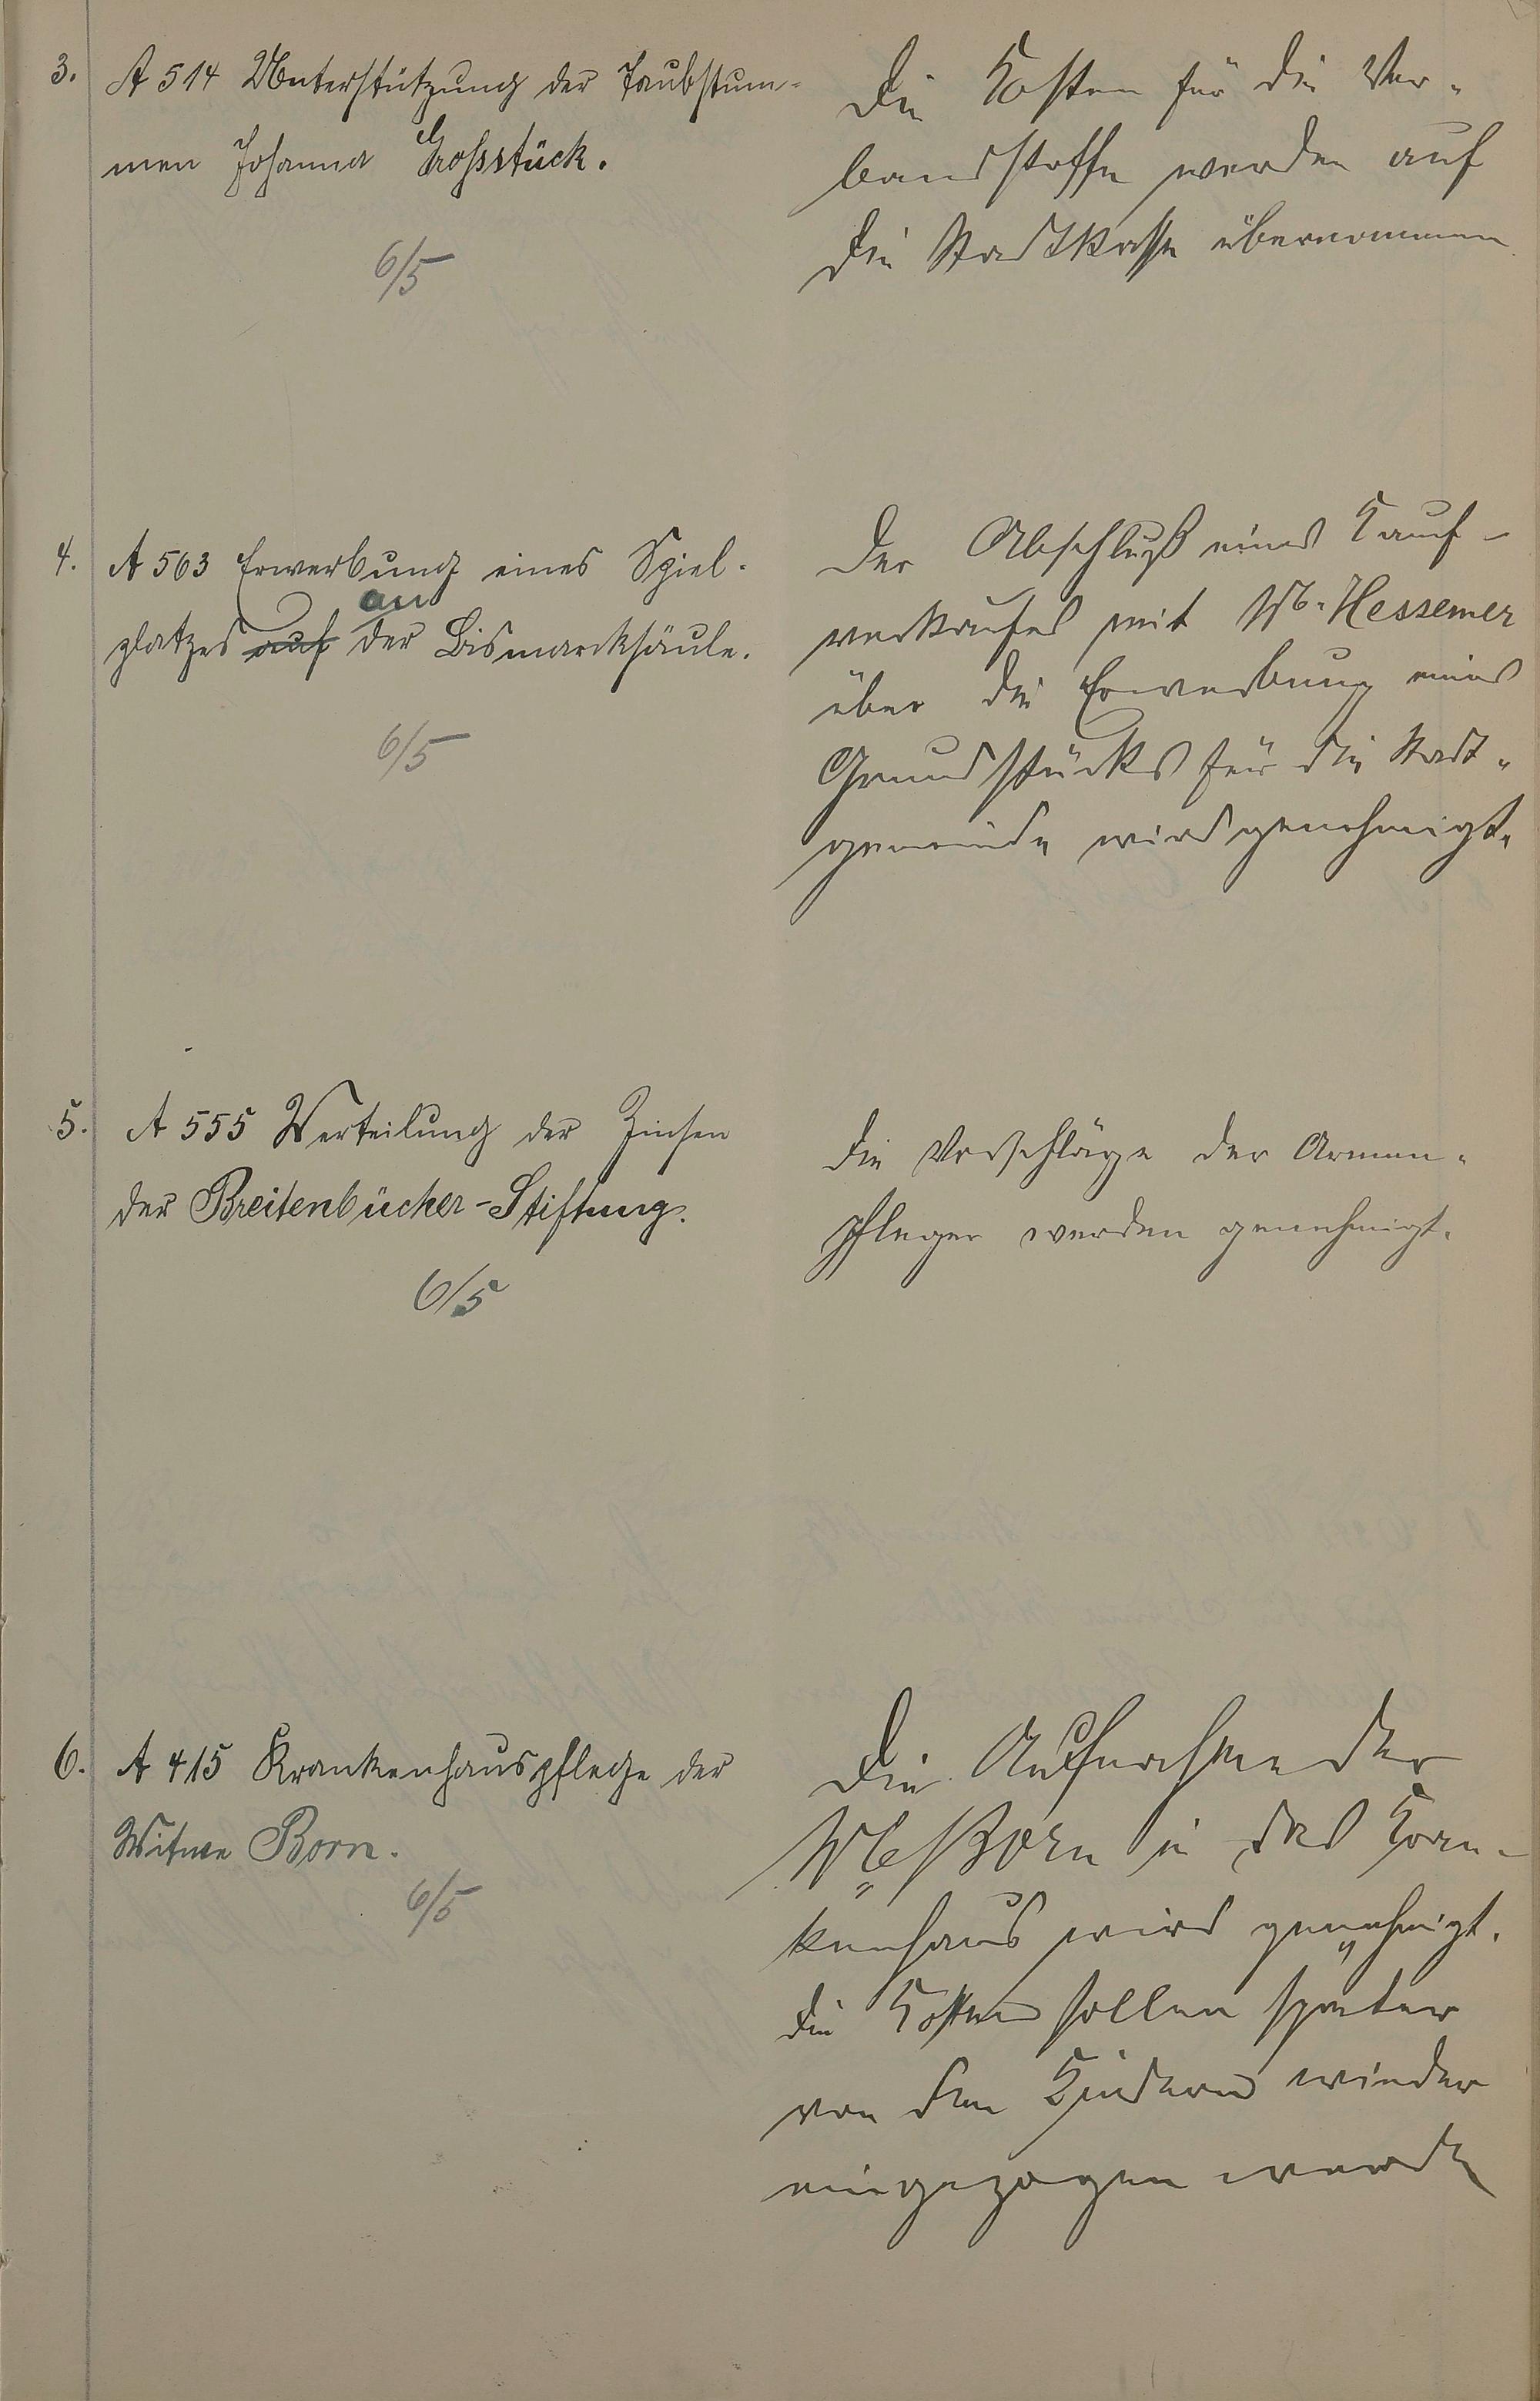 3. A 514 Unterstützung der Taubstum-
men Johanna Grossstück.
6/5
Die Kosten für die Ver-
bandstoffe werden auf
die Stadtkasse übernommen
4. A 563 Erwerbung eines Spiel-
an
platzes auf der Bismarcksäule.
6/5
Der Abschluß eines Kauf-
verkaufes mit Hessemer
über die Erwerbung eines
Grundstücks für die Stadt-
gemeinde wird genehmigt.
5. A 555 Verteilung der Zinsen
der Breitenbücher-Stiftung.
6/5
Die Vorschläge der Armen-
pfleger werden genehmigt.
6. A 415 Krankenhauspflege der
Witwe Born.
6/5
Die Aufnahme der
Born in das Kran-
kenhaus wird genehmigt.
Die Kosten sollen später
von den Kindern wieder
eingezogen werden